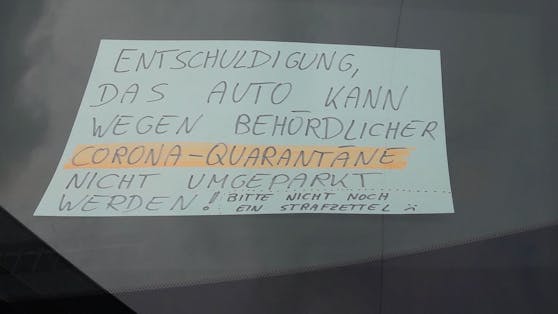 ENTSCHULDIGUNG,
DAS AUTO KANN
WEGEN BEHÖRDLICHER
CORONA-QUARANTÄNE
NICHT UMGEPARKT
WERDEN! BITTE NICHT NOCH
EIN STRAFZETTEL :(